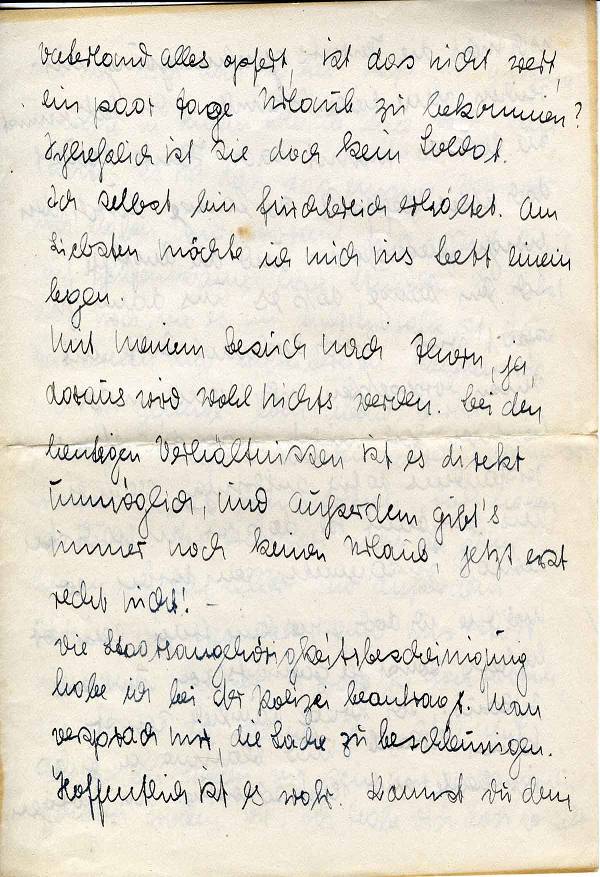 Vaterland alles opfert, ist das nicht wert,
ein paar Tage Urlaub zu bekommen?
Schließlich ist sie doch kein Soldat.
Ich selbst bin fürchterlich erkältet. Am
liebsten möchte ich mich ins Bett hinein
legen.
Mit meinem Besuch nach Thorn, ja,
daraus wird wohl nichts werden. Bei den
heutigen Verhältnissen ist es direkt
unmöglich, und außerdem gibt's
immer noch keinen Urlaub, jetzt erst
recht nicht! –
Die Staatsangehörigkeitsbescheinigung
habe ich bei der Polizei beantragt. Man
versprach mir, die Sache zu beschleunigen.
Hoffentlich ist es wahr. Kannst du denn